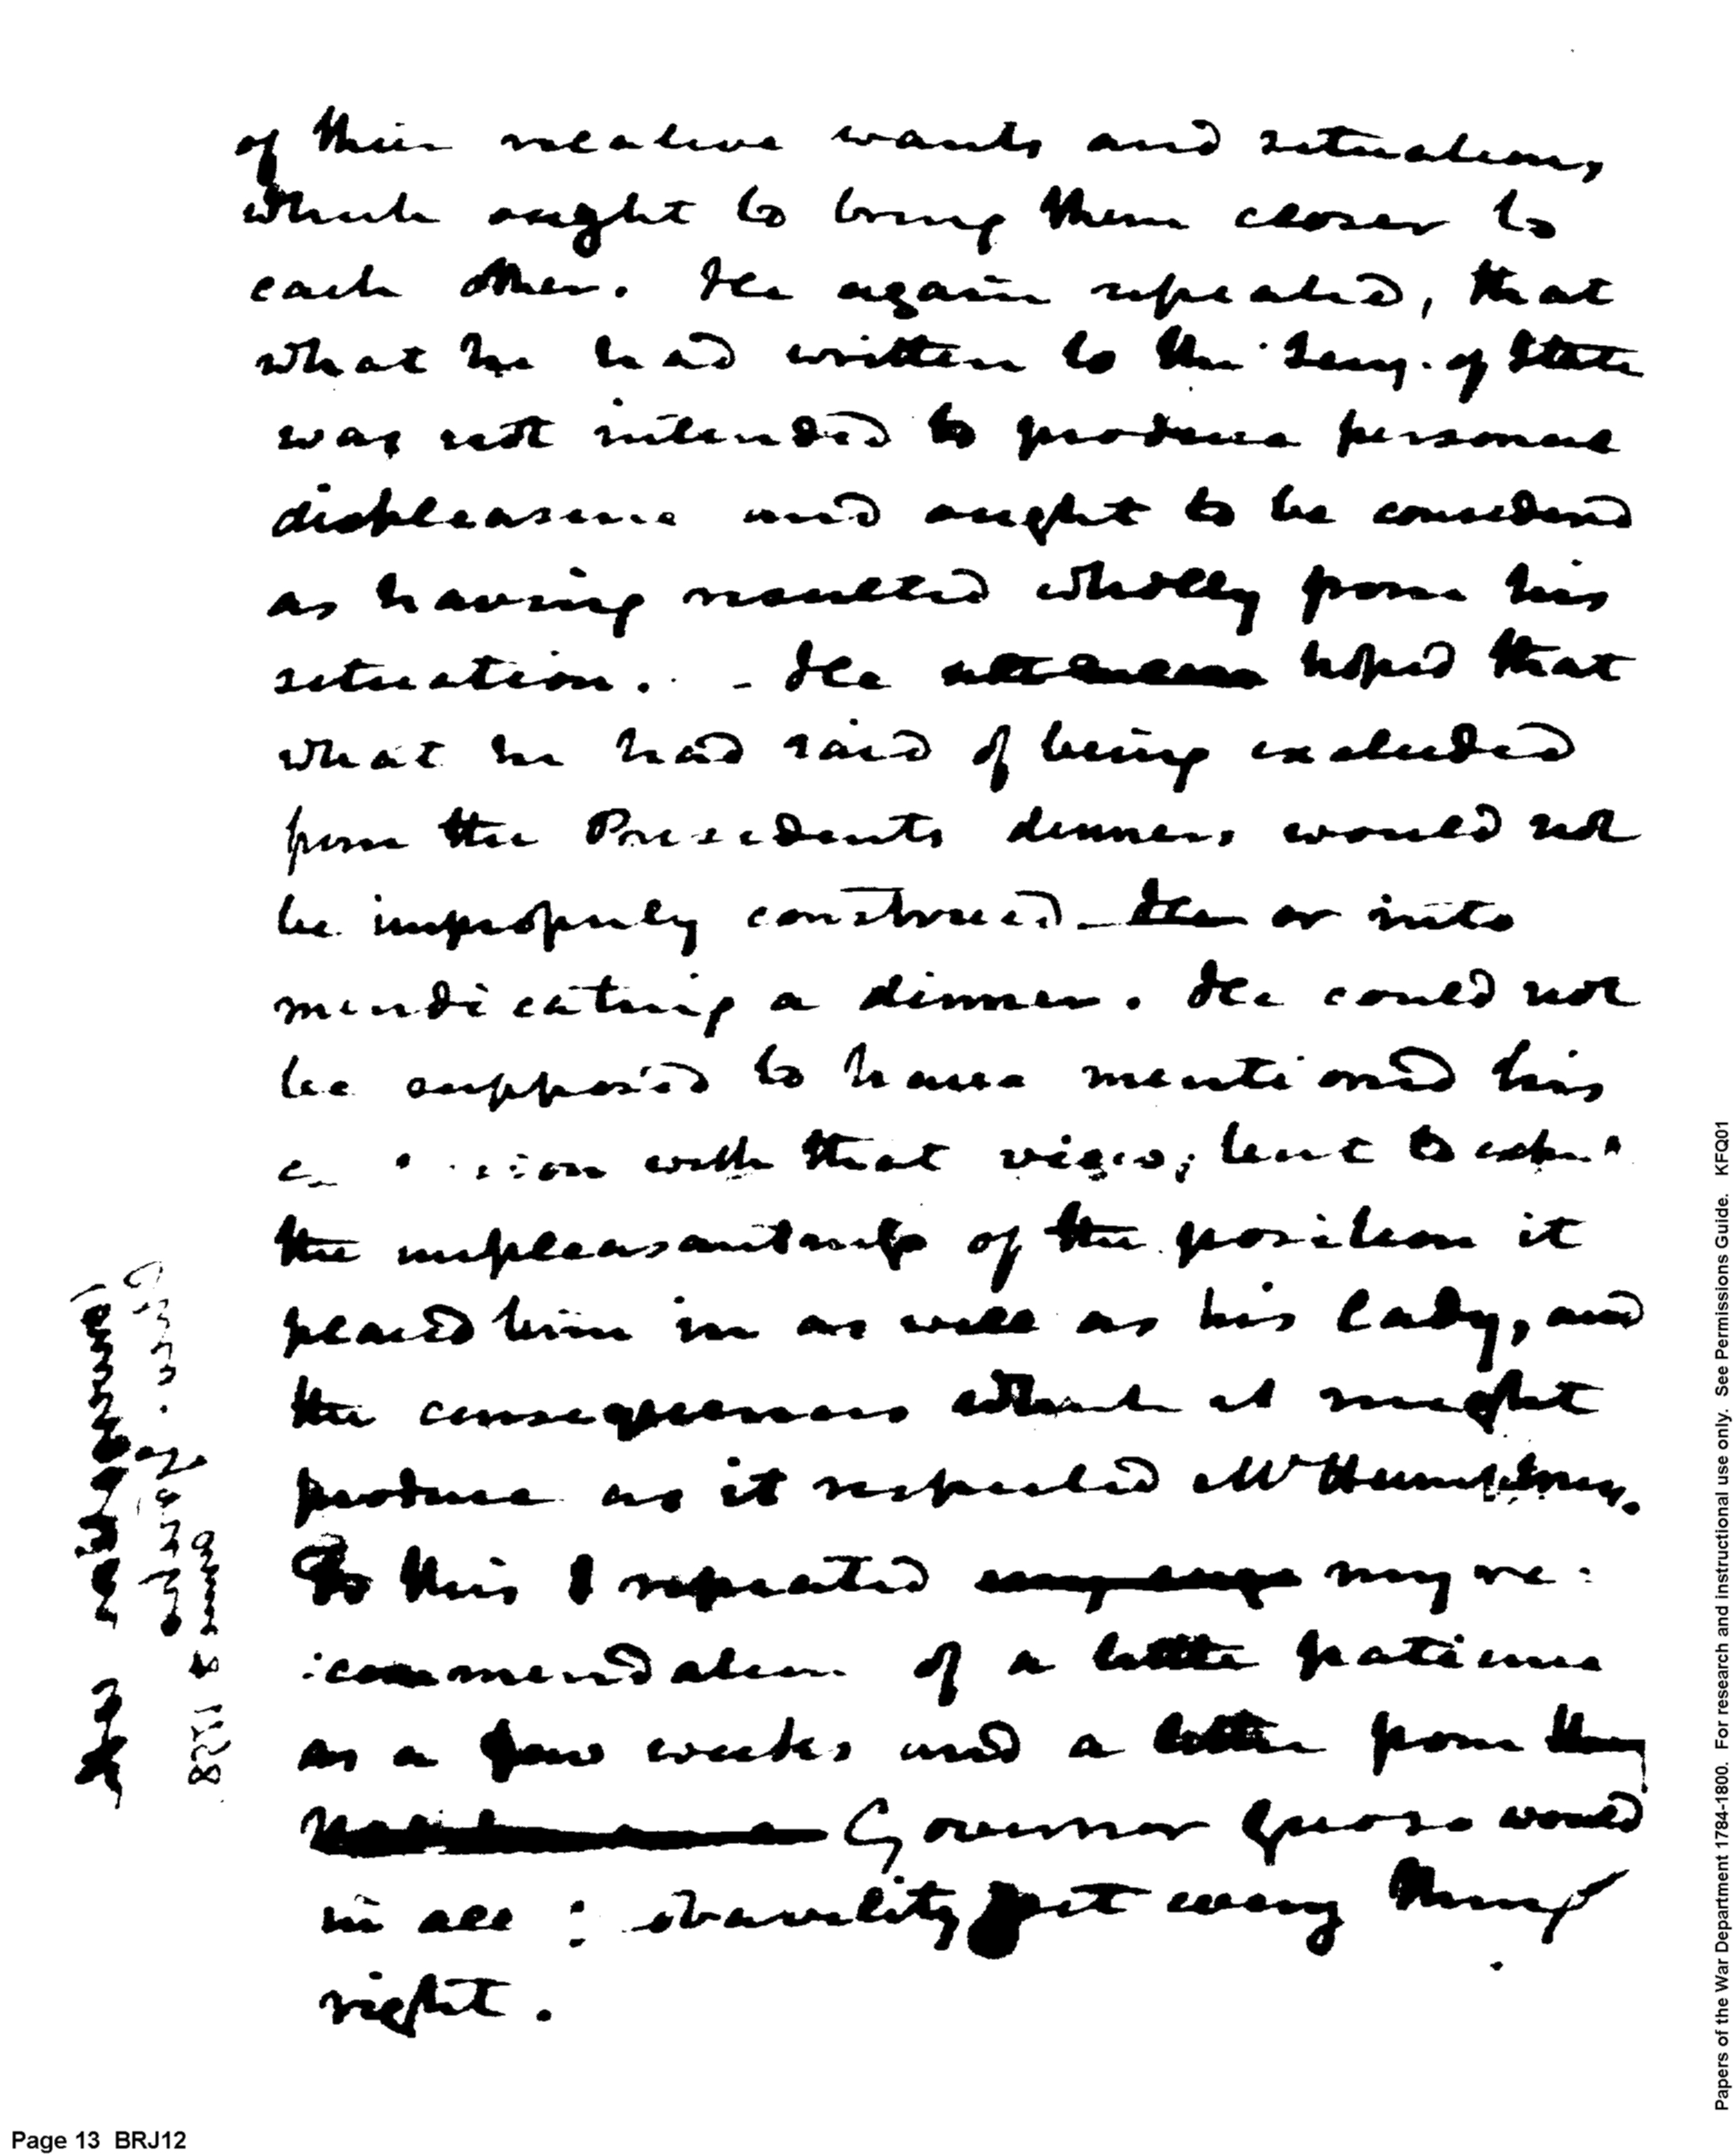 of their relative wants and situation,
which ought to bring them closer to
each other. He again repeated, that
what he had written to the Secy. of State
was not intended to produce personal
displeasure and ought to be considered
as having resulted wholly from his
situation. - He hoped that
what he had said of being excluded
from the Presidents dinners would not
be improperly construed or into
mendicating a dinner. He could not
be supposed to have mentioned his
with that view; but to
the unpleasantness of the position it
placed him in as well as his lady, and
the consequences which it might
produce as it respected Mr Humphreys.
To this I repeated my re:
:commendation of a little patience
as a few weeks and a letter from
Governor would
in all probability put every thing
right.
Page 13 BRJ12
Papers of the War Department 1784-1800. For research and instructional use only. See Permissions Guide. KFQ01